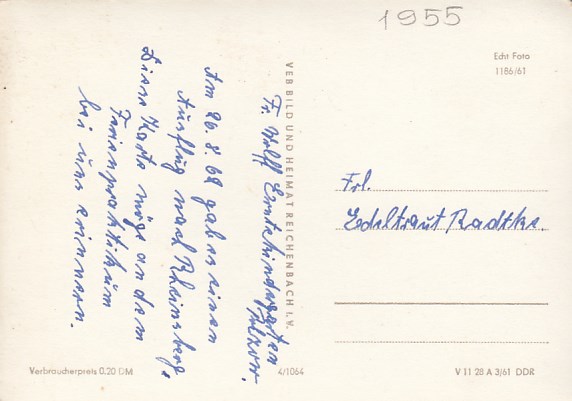 1955
Echt Foto
1186/61
VEB BILD UND HEIMAT REICHENBACH I. V.
Fr. Wolff Erntekindergarten
Am 26.8.62 gab es einen
Ausflug nach Rheinsberg,
Diese Karte möge an dem
Ferienpraktikum
bei uns erinnern.
Frl.
Edeltraut Radtke.
Verbraucherpreis 0,20 DM
4/1064
V 11 28 A 3/61 DDR